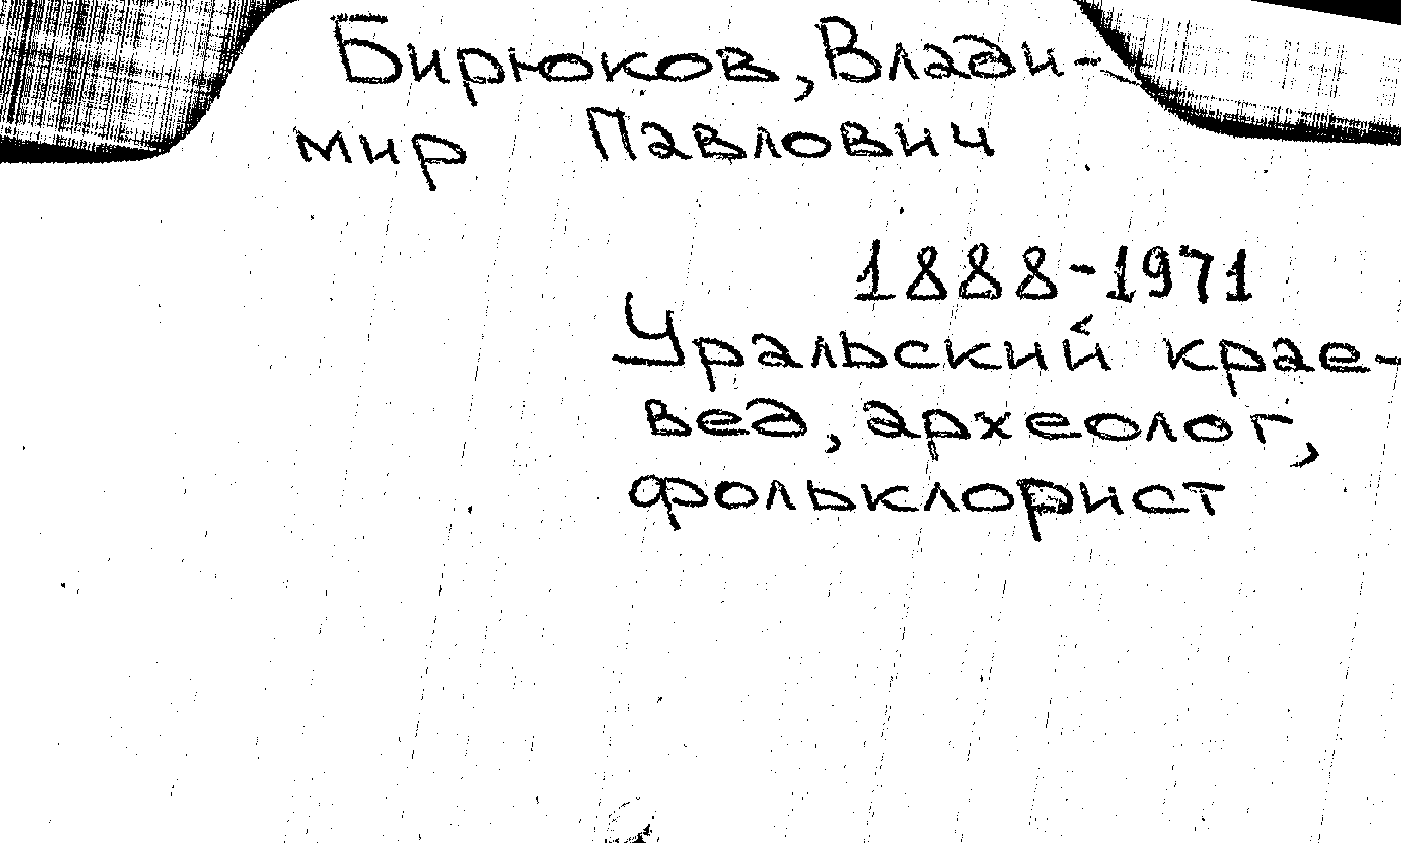 Бирюков, Влади-
мир Павлович
1888-1971
Уральский крае-
вед, археолог,
фольклорист